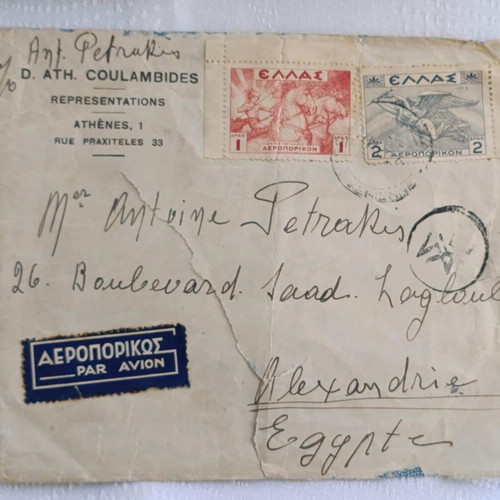 Ant. Petrakis
c/o
D. ATH. COULAMBIDES
REPRESENTATIONS
ATHÈNES, 1
RUE PRAXITELES 33
ΕΛΛΑΣ
ΔΡΑΧ
1
1
ΑΕΡΟΠΟΡΙΚΟΝ
ΕΛΛΑΣ
ΔΡΑΧ
2
2
ΑΕΡΟΠΟΡΙΚΟΝ
Mer Antoine Petrakis
26. Boulevard. Saad. Zagloul
ΑΕΡΟΠΟΡΙΚΩΣ
PAR AVION
Alexandrie
Egypte